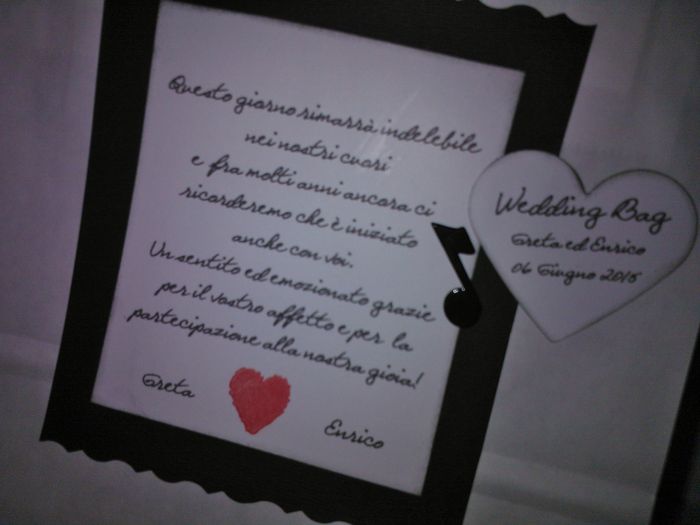 Questo giorno rimarrà indelebile
nei nostri cuori
e fra molti anni ancora ci
ricorderemo che è iniziato
anche con voi.
Un sentito ed emozionato grazie
per il vostro affetto e per la
partecipazione alla nostra gioia!
Greta
Enrico
Wedding Bag
Greta ed Enrico
06 Giugno 2015